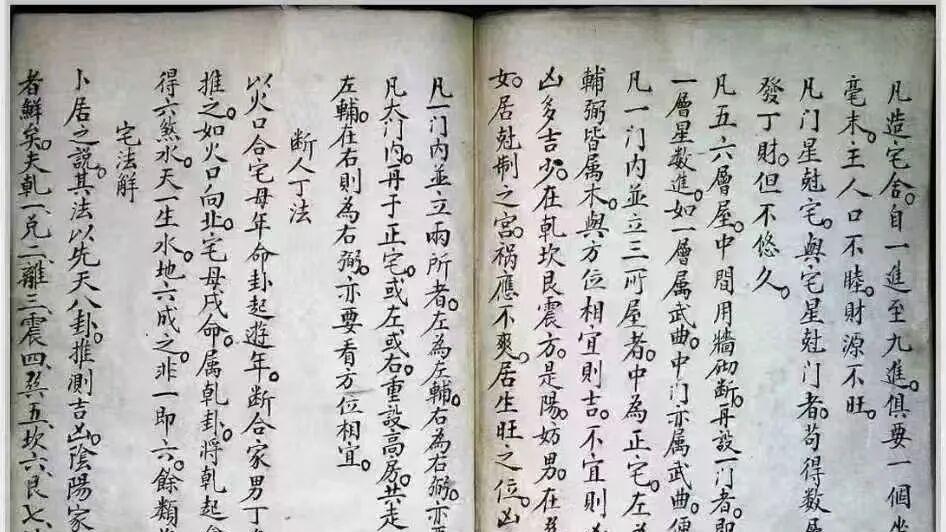 凡造宅舍。自一進至九進。俱要一個坐
毫末。主人口不睦。財源不旺。
凡門星尅宅。與宅星尅門者。苟得數層
發丁財。但不悠久。
凡五六層屋。中間用牆砌斷。再設一門者。即
一層星數進。如一層属武曲。中門亦属武曲。便
凡一門内並立三所屋者。中為正宅。左為
輔弼皆属木。與方位相宜則吉。不宜則凶
凶多吉少。在乹坎艮震方。是陽。妨男。在巽
如居尅制之宮。禍應不爽。居生旺之位。凶
凡一門内並立兩所者。左為左輔。右為右弼。亦要
凡大门内。再于正宅。或左或右。重設高房。共走
左輔。在右則為右弼。亦要看方位相宜。
断人丁法
以火口合宅母年命卦起遊年。断合家男丁
推之。如火口向北。宅母戌命。属乹卦。將乹起
得六煞水。天一生水。地六成之。非一即六。餘類
宅法解
卜居之說。其法以先天八卦。推測吉凶。陰陽家
者鮮矣。夫乹一。兌二。離三。震四。巽五。坎六。艮七。